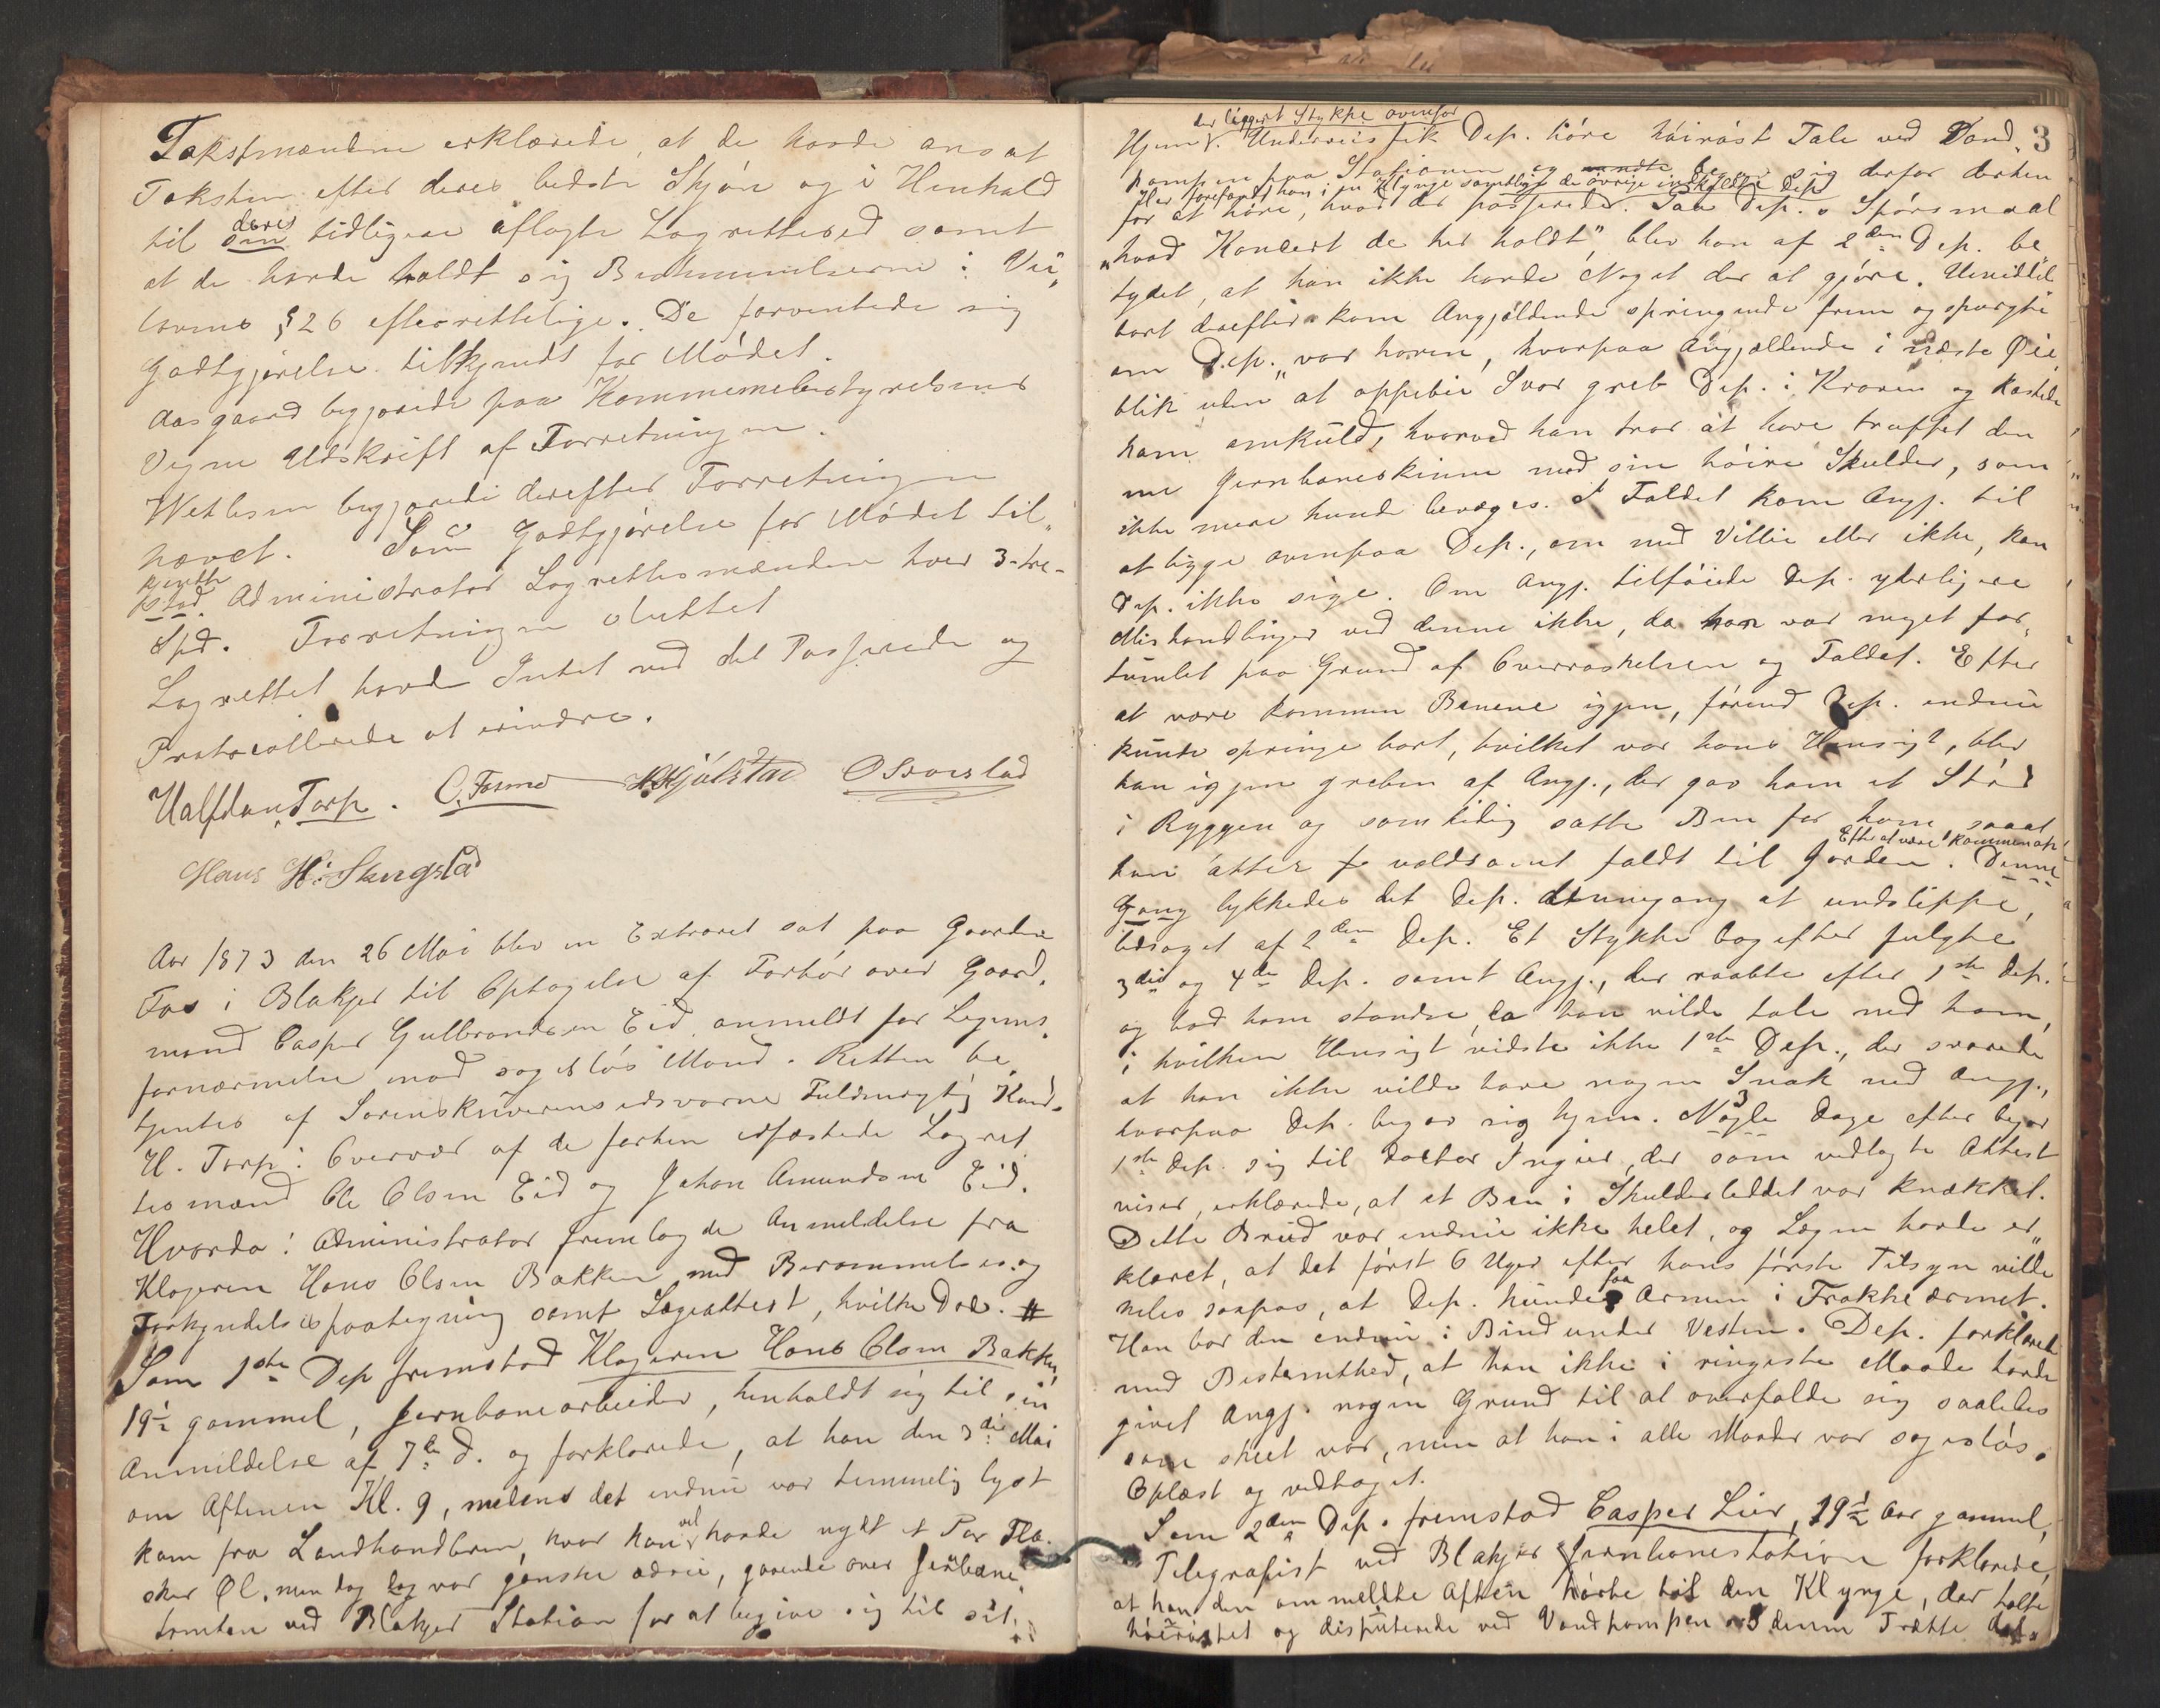 Takstmændene erklærede, at de havde ansat
Taksten efter deres bedste Skjøn og i Henhold
til sin deres tidligere aflagte Lagretteed samt
at de havde holdt sig Bestemmelserne i Vei-
lovens § 26 efterrettelige. De forventede sig
Godtgjørelse tilkjendt for Mødet.
Aasgaard begjærede paa Kommunebestyrelsens
Vegne Udskrift af Forretningen.
Wetlesen begjærede derefter Forretningen
hævet. Som Godtgjørelse for Mødet til-
kjendte Administrator Lagrettesmændene hver 3-tre-
Spd. Forretningen sluttet
Lagrettet havde Intet ved det Passerede og
Protocollerede at erindre.
Halfdan Torp. C. Fosmo H. Kjølstad O SVarstad
Hans H: Slangstad
Aar 1873 den 26 Mai blev en Extraret sat paa Gaarden
Fos i Blakjer til Optagelse af Forhør over Gaard-
mand Casper Gulbrandsen Eid anmeldt for Legems-
fornærmelse mod sagesløs Mand. Retten be-
tjentes af Sorenskriverens edsvorne Fuldmægtig Kand.
H. Torp i Overvær af de forhen edfæstede Lagret-
tesmænd Ole Olsen Eid og Johan Amundsen Eid.
Hvorda: Administrator fremlagde Anmeldelse fra
Klageren Hans Olsen Bakken med Berammelses og
Forkyndelsespaategning samt Lægeattest, hvilke Doc. #
Som 1ste Dep fremstod Klageren Hans Olsen Bakken,
19½ gammel, Jernbanearbeider, henholdt sig til sin
Anmeldelse af 7de d. og forklarede, at han den 3die Mai
om Aftenen Kl. 9, medens det endnu var temmelig lyst
kom fra Landhandleren, hvor han vel havde nydt et Par Fla-
sker Øl, men dog dog var ganske ædru, gaaende over Jernbane-
tomten ved Blakjer Station for at begive sig til sit
3
der ligger et Stykke ovenfor
Hjem. Underveis fik Dep. høre høirøst Tale ved Vand-
pompen paa Stationen og begav sig derfor derhen
Her forefandt han i en Klynge samtlige de øvrige indkaldte Dep.
for at høre, hvad der passerede. Paa Dep. s Spørsmaal
"hvad Koncert de her holdt", blev han af 2den Dep. be-
tydet, at han ikke havde Noget der at gjøre. Umiddel-
bart derefter kom Angjældende springende frem og spurgte
om Dep. "var karen", hvorpaa Angjældende i næste Øie-
blik uden at oppebie Svar greb Dep. i Kraven og kastede
ham omkuld, hvorved han tror at have truffet den
ene Jernbaneskinne med sin høire Skulder, som
ikke mere kunde bevæges. I Faldet kom Angj. til
at ligge ovenpaa Dep., om med Villie eller ikke, kan
Dep. ikke sige. Om Angj. tilføiede Dep. yderligere
Mishandlinger ved denne ikke, da han var meget for-
tumlet paa Grund af Overraskelsen og Faldet. Efter
at være kommen Benene igjen, førend Dep. endnu
kunde springe bort, hvilket var hans Hensigt, blev
han igjen greben af Angj., der gav ham et Stød
i Ryggen og samtidig satte Ben for ham saaat
han atter voldsomt faldt til Jorden. Efter at være kommen op Denne
Gang lykkedes det Dep. dennegang at undslippe,
ledsaget af 2den Dep. Et Stykke bagefter fulgte
3die og 4de Dep. samt Angj., der raabte efter 1ste Dep.
og bad ham standse, da han vilde tale med ham,
i hvilken Hensigt vidste ikke 1ste Dep., der svarede
at han ikke vilde have nogen Snak med Angj.,
hvorpaa Dep. begav sig hjem. Nogle 3 Dage efter begav
1ste Dep. sig til Doctor Ingier, der som vedlagte Attest
viser, erklærede, at et Ben i Skulderleddet var knækket.
Dette Brud var endnu ikke helet, og Lægen havde er-
klæret, at det først 6 Uger efter hans første Tilsyn vilde
heles saapas, at Dep. kunde faa Armen i Frakkeærmet.
Han bar den endnu i Bind under Vesten. Dep. forklared
med Bestemthed, at han ikke i ringeste Maade havde
givet Angj. nogen Grund til at overfalde sig saaledes
som skeet var, men at han i alle Maader var sagesløs.
Oplæst og vedtaget.
Som 2den Dep. fremstod Casper Lier, 19½ Aar gammel,
Telegrafist ved Blakjer Jernbanestation forklarede,
at han den ommeldte Aften hørte til den Klynge, der talte
høirøstet og disputerede ved Vandpompen denne Trætte